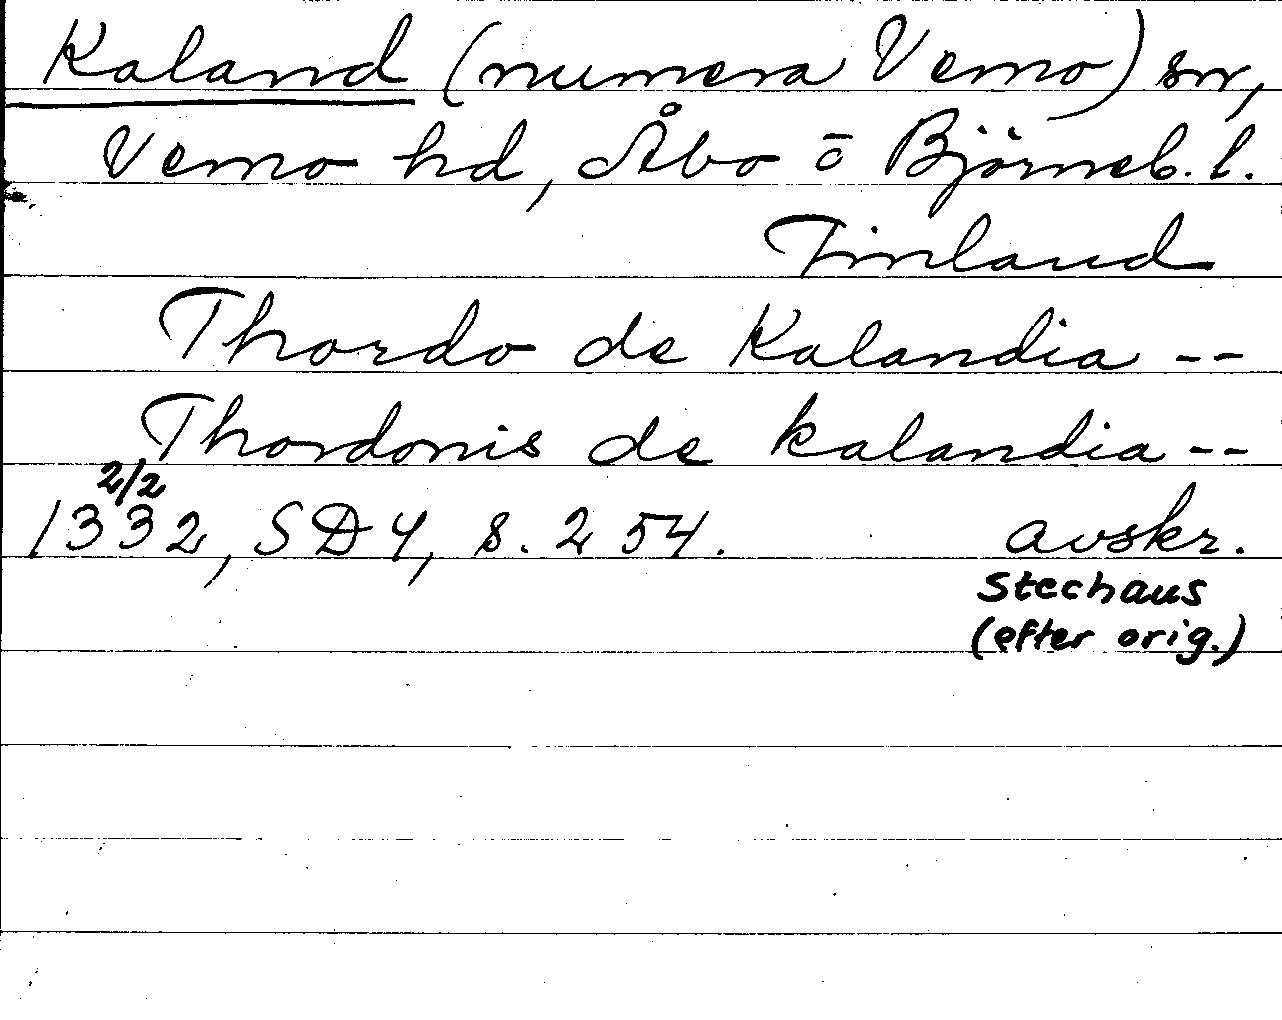 Kaland (numera Vemo) sn,
Vemo hd, Åbo o Björneb. l.
Finland
Thordo de Kalandia --
Thordonis de kalandia --
2/2
1332, SD 4, s. 254. avskr.
Stechaus
(efter orig.)